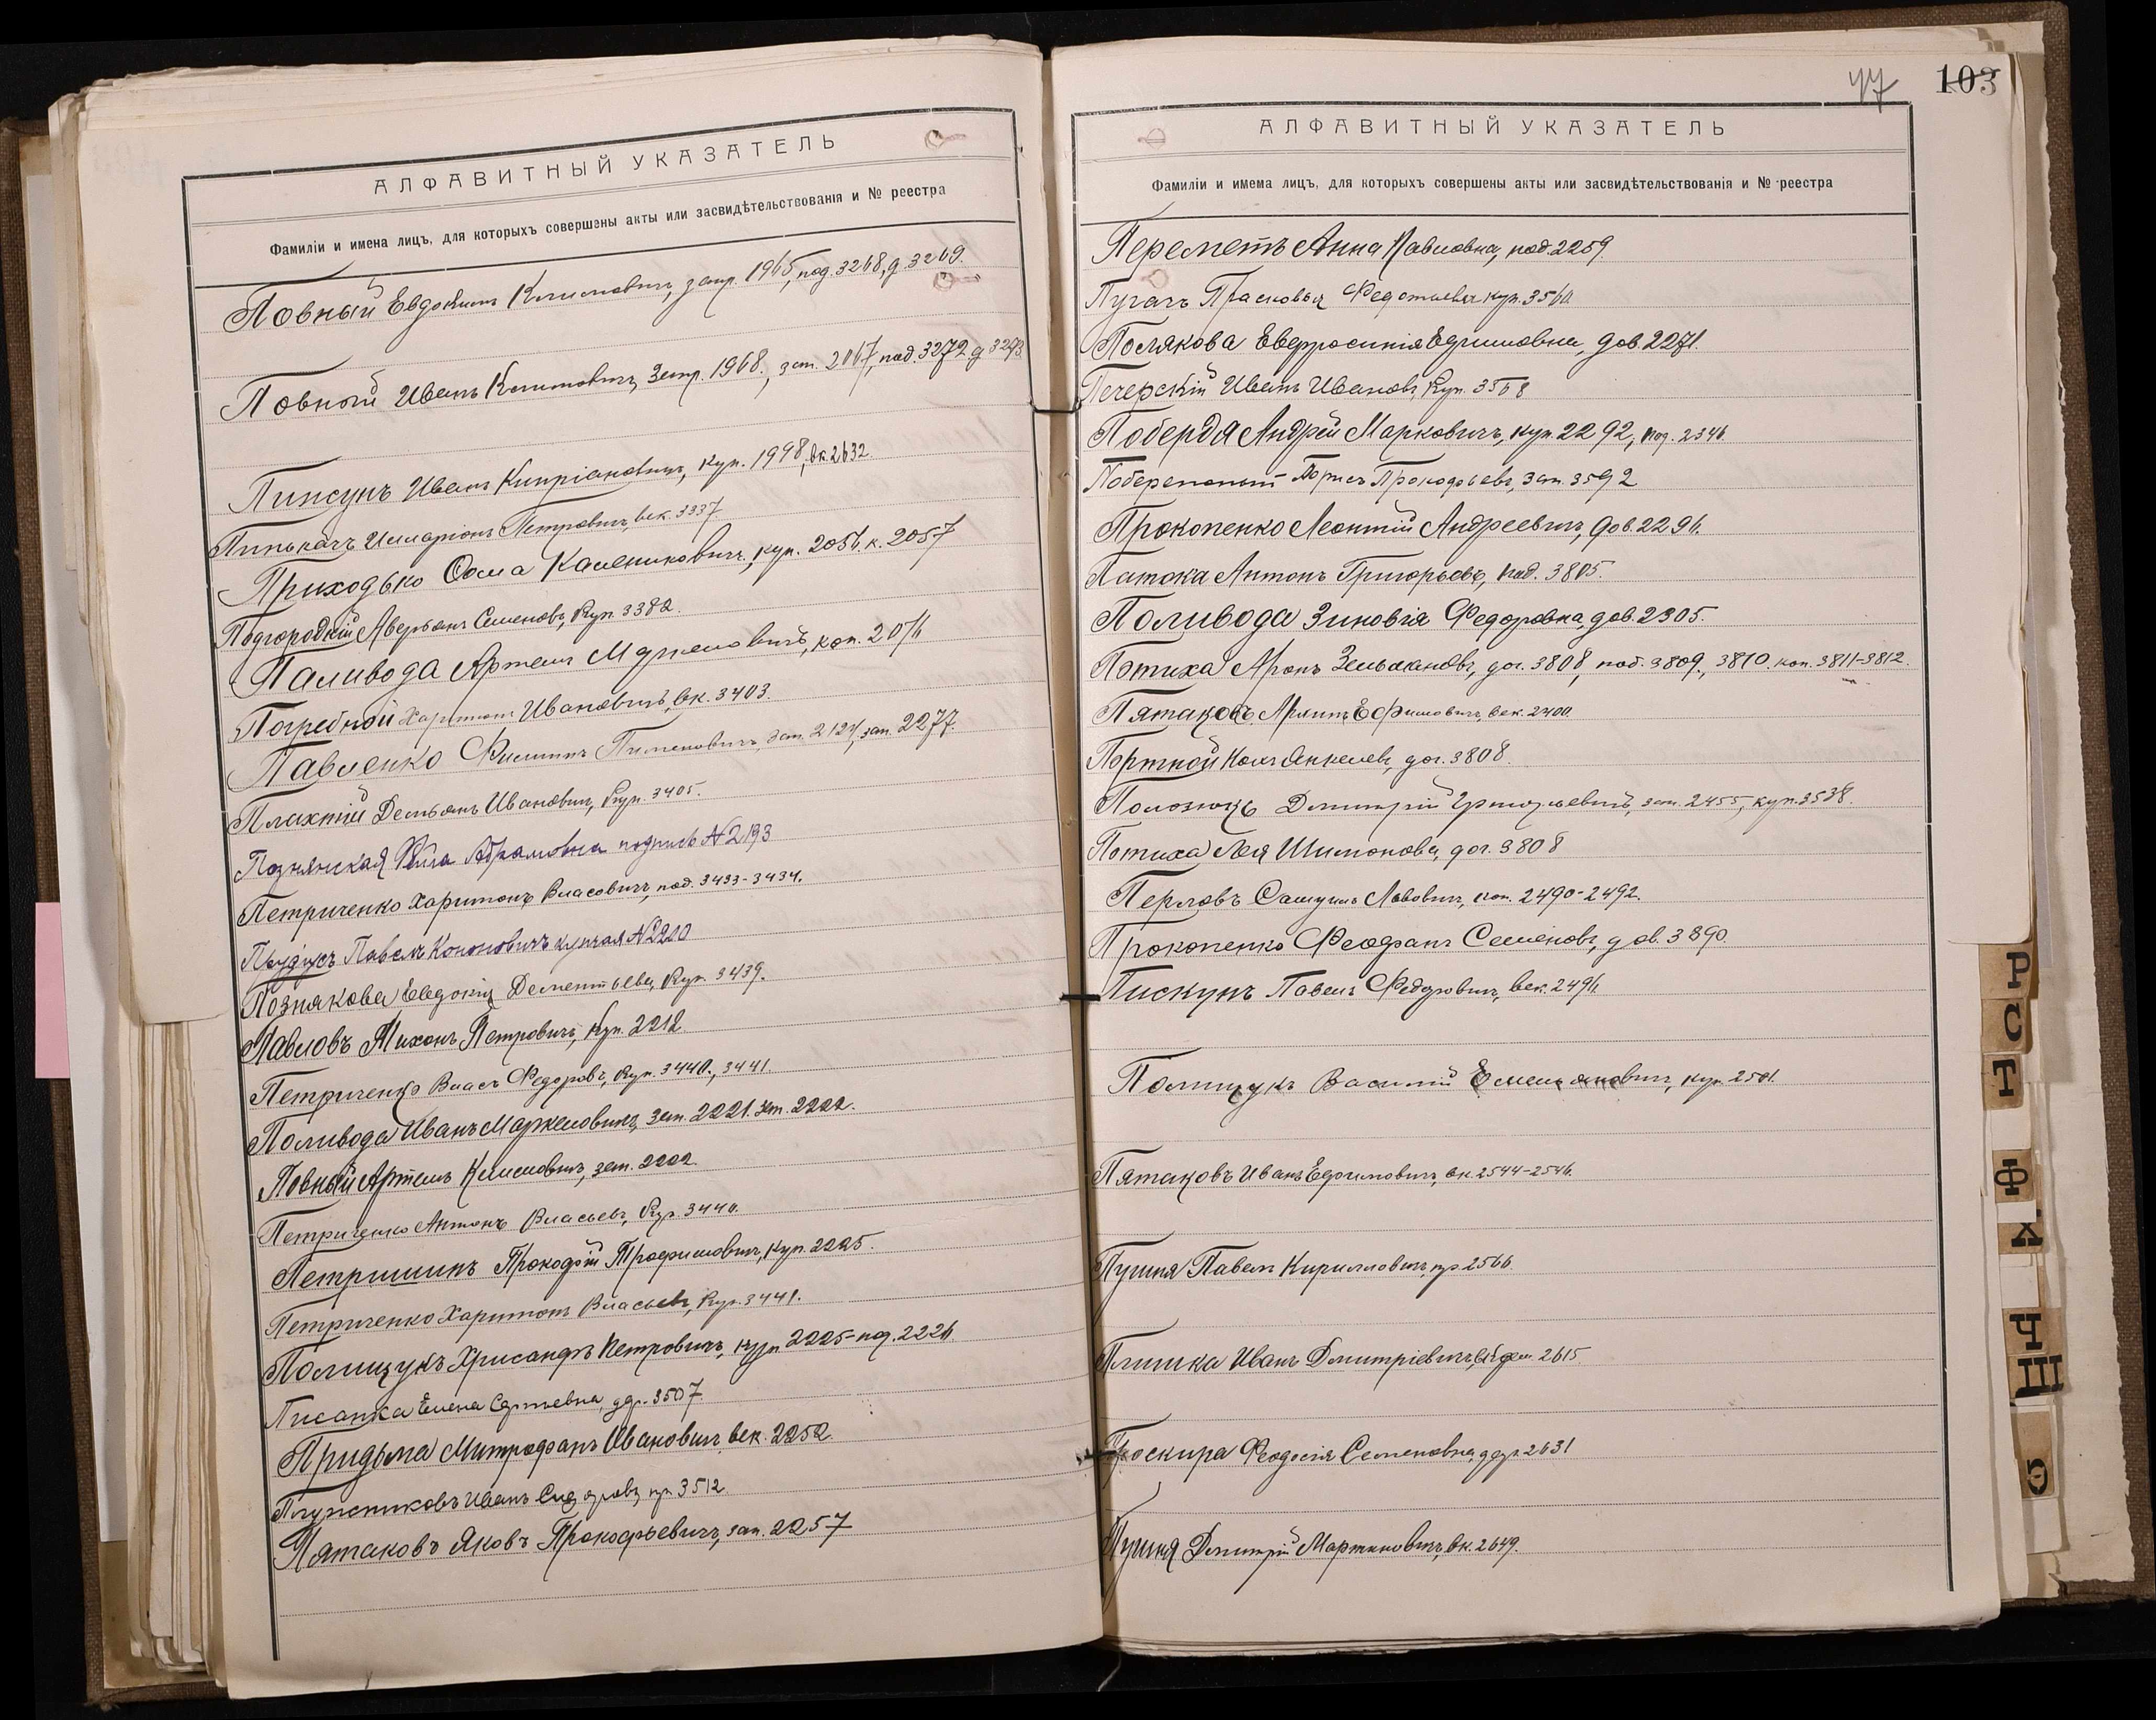 АЛФАВИТНЫЙ УКАЗАТЕЛЬ
Фамиліи и имена лицъ, для которыхъ совершены акты или засвидѣтельствованія и № реестра
Повный Евдокимъ Климовичъ, запр. 1965, под. 3268, д. 3269.
Повный Иванъ Климовичъ, Запр. 1968., зап. 2067, под. 3272 д 3273
Пипсунъ Иванъ Кипріановичъ, куп. 1998, вк. 2632.
Пинькачъ Илларіонъ Петровичъ, век. 3337
Приходько Ѳома Калениковичъ, куп. 2056. к. 2057
Подгородній Аверьянъ Семеновъ, Куп. 3382.
Паливода Артемъ Маркеловичъ, коп. 2076
Погребной Харитонъ Ивановичъ, вк. 3403.
Павленко Филиппъ Пименовичъ, зап. 2124, зап. 2277.
Плахтій Демьянъ Ивановичъ, Куп. 3405.
Познянская Фейга Абрамовна подпись № 2193
Петриченко Харитонъ Власовичъ, под. 3433-3434.
Прудіусъ Павелъ Кононовичъ купчая № 2210
Познякова Евдокія Дементьева, Куп. 3439.
Павловъ Тихонъ Петровичъ, Куп. 2212.
Петриченко Власъ Федоровъ, Куп. 3440., 3441.
Поливода Иванъ Маркеловичъ, зап. 2221. зап. 2222.
Повный Артемъ Климовичъ, зап. 2222.
Петриченко Антонъ Власьевъ, Куп. 3440.
Петришинъ Прокофій Трофимовичъ, куп. 2225.
Петриченко Харитонъ Власьевъ, Куп. 3441.
Полищукъ Хрисанфъ Петровичъ, куп. 2225-под. 2226.
Писанка Елена Сергѣевна, дар. 3507.
Придьма Митрофанъ Ивановичъ, век. 2252.
Плужниковъ Иванъ Сидоровъ, пр. 3512.
Пятаковъ Яковъ Прокофьевичъ, зап. 2257
47
103
АЛФАВИТНЫЙ УКАЗАТЕЛЬ
Фамиліи и имема лицъ, для которыхъ совершены акты или засвидѣтельствованія и № реестра
Переметъ Анна Павловна, под. 2259.
Пугачъ Прасковья Федотьева куп. 3560.
Полякова Евфросинія Ефимовна, дов. 2271.
Печерскій Иванъ Ивановъ, Куп. 3568
Побердя Андрей Марковичъ, куп. 2292, под. 2346.
Прокофьевъ, зап. 3592
Прокопенко Леонтій Андреевичъ, дов. 2296.
Патока Антонъ Григорьевъ, под. 3805.
Поливода Зиновія Федоровна, дов. 2305.
Потиха Аронъ Зельмановъ, дог. 3808, под. 3809., 3810. коп. 3811-3812.
Пятаковъ Ефимовичъ, век. 2400.
Портной Янкелевъ, дог. 3808.
Полознюкъ Дмитрій Григорьевичъ, зап. 2455, куп. 3538.
Потиха Лея Шимонова, дог. 3808
Перловъ Самуилъ Львовичъ, коп. 2490-2492.
Прокопенко Феофанъ Семеновъ, дов. 3890.
Пискунъ Павелъ Федоровичъ, век. 2496.
Полищукъ Василій Емельяновичъ, куп. 2501.
Пятаковъ Иванъ Ефимовичъ, вк. 2544-2546.
Пугиня Павелъ Кирилловичъ, пр. 2566.
Плишка Иванъ Дмитріевичъ, 2615.
Проскира Феодосія Семеновна, дар. 2631
Пугиня Дмитрій Мартиновичъ, вк. 2649.
Р
С
Т
Ф
Х
Ч
Ш
Э